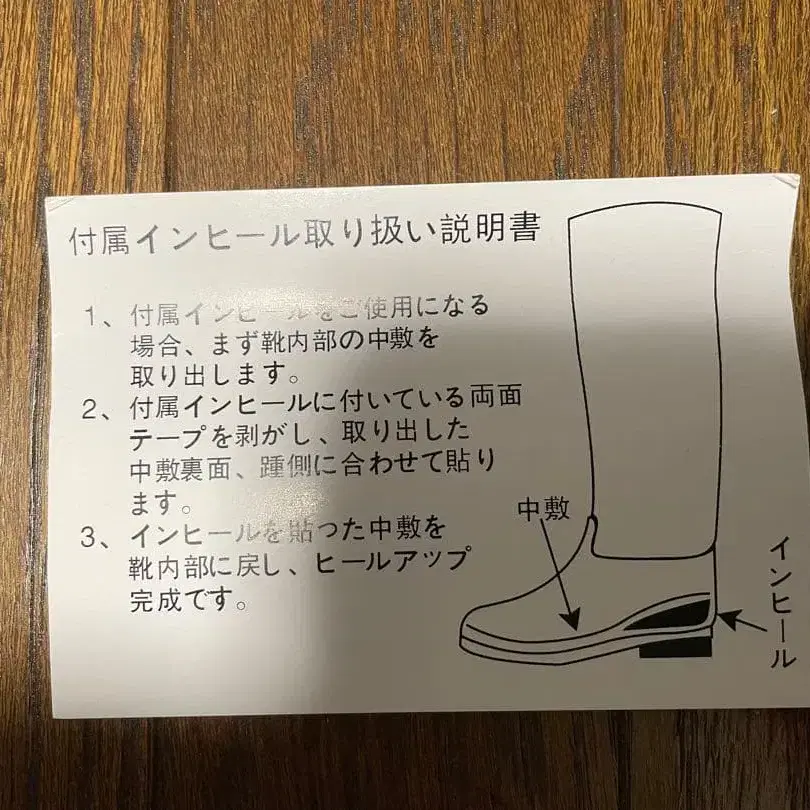 付属インヒール取り扱い説明書
1、付属インヒールをご使用になる
場合、まず靴内部の中敷を
取り出します。
2、付属インヒールに付いている両面
テープを剥がし、取り出した
中敷裏面、踵側に合わせて貼り
ます。
3、インヒールを貼つた中敷を
靴内部に戻し、ヒールアップ
完成です。
中敷
インヒール